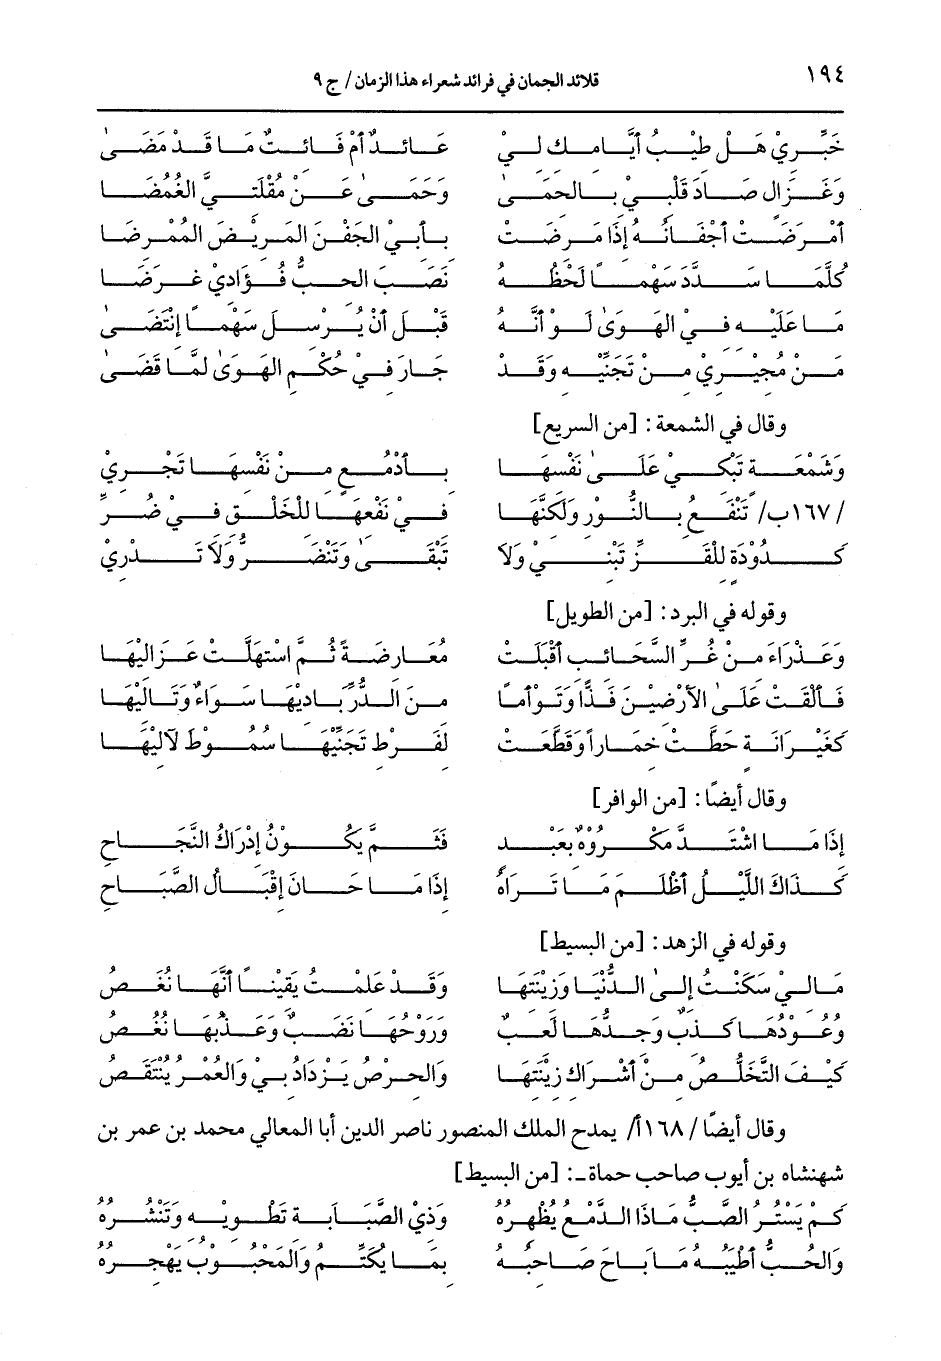 ١٩٤ قلائد الجمان في فرائد شعراء هذا الزمان/ ج ٩
خَبِّرِيْ هَلْ طِيْبُ أيَّامِكِ لِيْ عَائِدٌ أمْ فَائِتٌ مَا قَدْ مَضَىٰ
وَغَزَالٍ صَادَ قَلْبِيْ بِالحِمَىٰ وَحَمَىٰ عَنْ مُقْلَتِيَّ الغُمُضَا
أمْرَضَتْ أجْفَانُهُ إذَا مَرِضَتْ بِأبِيْ الجَفْنَ المَرِيْضَ المُمْرِضَا
كُلَّمَا سَدَّدَ سَهْمًا لَحْظُهُ نَصَبَ الحبُّ فُؤَادِيْ غَرَضَا
مَا عَلَيْهِ فِي الهَوَىٰ لَوْ أنَّهُ قَبْلَ أنْ يُرْسِلَ سَهْمًا إنْتَضَىٰ
مَنْ مُجِيْرِيْ مِنْ تَجَنِّيْهِ وَقَدْ جَارَ فِيْ حُكْمِ الهَوَىٰ لَمَّا قَضَىٰ
وقال في الشمعة: [من السريع]
وَشَمْعَةٍ تَبْكِيْ عَلَىٰ نَفْسِهَا بِأدْمُعٍ مِنْ نَفْسِهَا تَجْرِيْ
/١٦٧ب/ تَنْفَعُ بِالنُّوْرِ وَلَكِنَّهَا فِيْ نَفْعِهَا لِلْخَلْقِ فِيْ ضُرِّ
كَدُوْدَةٍ لِلْقَزِّ تَبْنِيْ وَلاَ تَبْقَىٰ وَتَنْضَرُّ وَلاَ تَدْرِيْ
وقوله في البرد: [من الطويل]
وَعَذْرَاءَ مِنْ غُرِّ السَّحَائِبِ أقْبَلَتْ مُعَارِضَةً ثُمَّ اسْتَهَلَّتْ عَزَالِيْهَا
فَألْقَتْ عَلَىٰ الأرَضِيْنَ فَذًّا وَتَوْأمًا مِنَ الدُّرِّ بَادِيْهَا سَوَاءٌ وَتَالِيْهَا
كَغَيْرَانَةٍ حَطَّتْ خِمَاراً وَقَطَّعَتْ لِفَرْطِ تَجَنِّيْهَا سُمُوْطَ لآلِيْهَا
وقال أيضًا: [من الوافر]
إذَا مَا اشْتَدَّ مَكْرُوْهٌ بِعَبْدٍ فَثَمَّ يَكُوْنُ إدْرَاكُ النَّجَاحِ
كَذَاكَ اللَّيْلُ أظْلَمَ مَا تَرَاهُ إذَا مَا حَانَ إقْبَالُ الصَّبَاحِ
وقوله في الزهد: [من البسيط]
مَالِيْ سَكَنْتُ إلىٰ الدُّنْيَا وَزِيْنَتِهَا وَقَدْ عَلِمْتُ يَقِيْنًا أنَّهَا نُغَصُ
وُعُوْدُهَا كَذِبٌ وَجِدُّهَا لَعِبٌ وَرَوْحُهَا نَصَبٌ وَعَذْبُهَا نُغَصُ
كَيْفَ التَّخَلُّصُ مِنْ أشْرَاكِ زِيْنَتِهَا وَالحِرْصُ يَزْدَادُ بِيْ وَالعُمْرُ يُنْتَقَصُ
وقال أيضًا /١٦٨أ/ يمدح الملك المنصور ناصر الدين أبا المعالي محمد بن عمر بن
شهنشاه بن أيوب صاحب حماة ـ: [من البسيط]
كَمْ يَسْتُرُ الصَّبُّ مَاذَا الدَّمْعُ يُظْهِرُهُ وَذِيْ الصَّبَابَةِ تَطْوِيْهِ وَتَنْشُرُهُ
وَالحُبُّ أطْيَبُهُ مَا بَاحَ صَاحِبُهُ بِمَا يُكَتِّمُ وَالمَحْبُوْبُ يَهْجُرُهُ